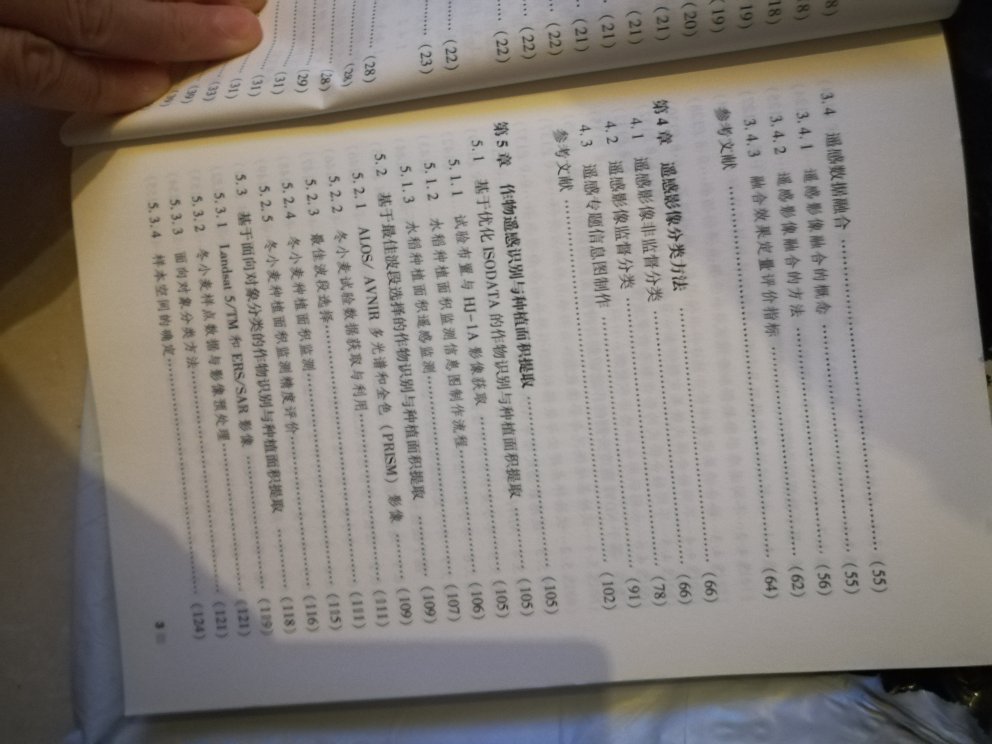 8)
18)
18)
19)
(19)
(20)
(21)
(21)
(21)
(21)
(22)
(22)
(22)
(22)
(23)
(28)
(28)
(28)
(29)
(31)
(31)
(31)
(33)
3.4 遥感数据融合 ……………… (55)
3.4.1 遥感影像融合的概念 ……………… (55)
3.4.2 遥感影像融合的方法 ……………… (56)
3.4.3 融合效果定量评价指标 ……………… (62)
参考文献 ……………… (64)
第4章 遥感影像分类方法 ……………… (66)
4.1 遥感影像非监督分类 ……………… (66)
4.2 遥感影像监督分类 ……………… (78)
4.3 遥感专题信息图制作 ……………… (91)
参考文献 ……………… (102)
第5章 作物遥感识别与种植面积提取 ……………… (105)
5.1 基于优化ISODATA的作物识别与种植面积提取 ……………… (105)
5.1.1 试验布置与HJ-1A影像获取 ……………… (105)
5.1.2 水稻种植面积监测信息图制作流程 ……………… (106)
5.1.3 水稻种植面积遥感监测 ……………… (107)
5.2 基于最佳波段选择的作物识别与种植面积提取 ……………… (109)
5.2.1 ALOS/AVNIR多光谱和全色（PRISM）影像 ……………… (109)
5.2.2 冬小麦试验数据获取与利用 ……………… (111)
5.2.3 最佳波段选择 ……………… (111)
5.2.4 冬小麦种植面积监测 ……………… (115)
5.2.5 冬小麦种植面积监测精度评价 ……………… (116)
5.3 基于面向对象分类的作物识别与种植面积提取 ……………… (118)
5.3.1 Landsat 5/TM和ERS/SAR影像 ……………… (119)
5.3.2 冬小麦样点数据与影像预处理 ……………… (121)
5.3.3 面向对象分类方法 ……………… (121)
5.3.4 样本空间的确定 ……………… (124)
3